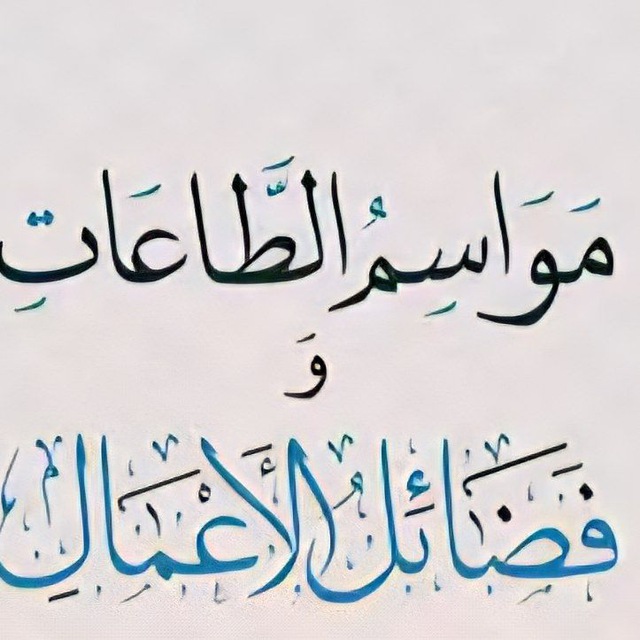 مَوَاسِمُ الطَّاعَاتِ
وَ
فَضَائِلُ الأَعْمَالِ